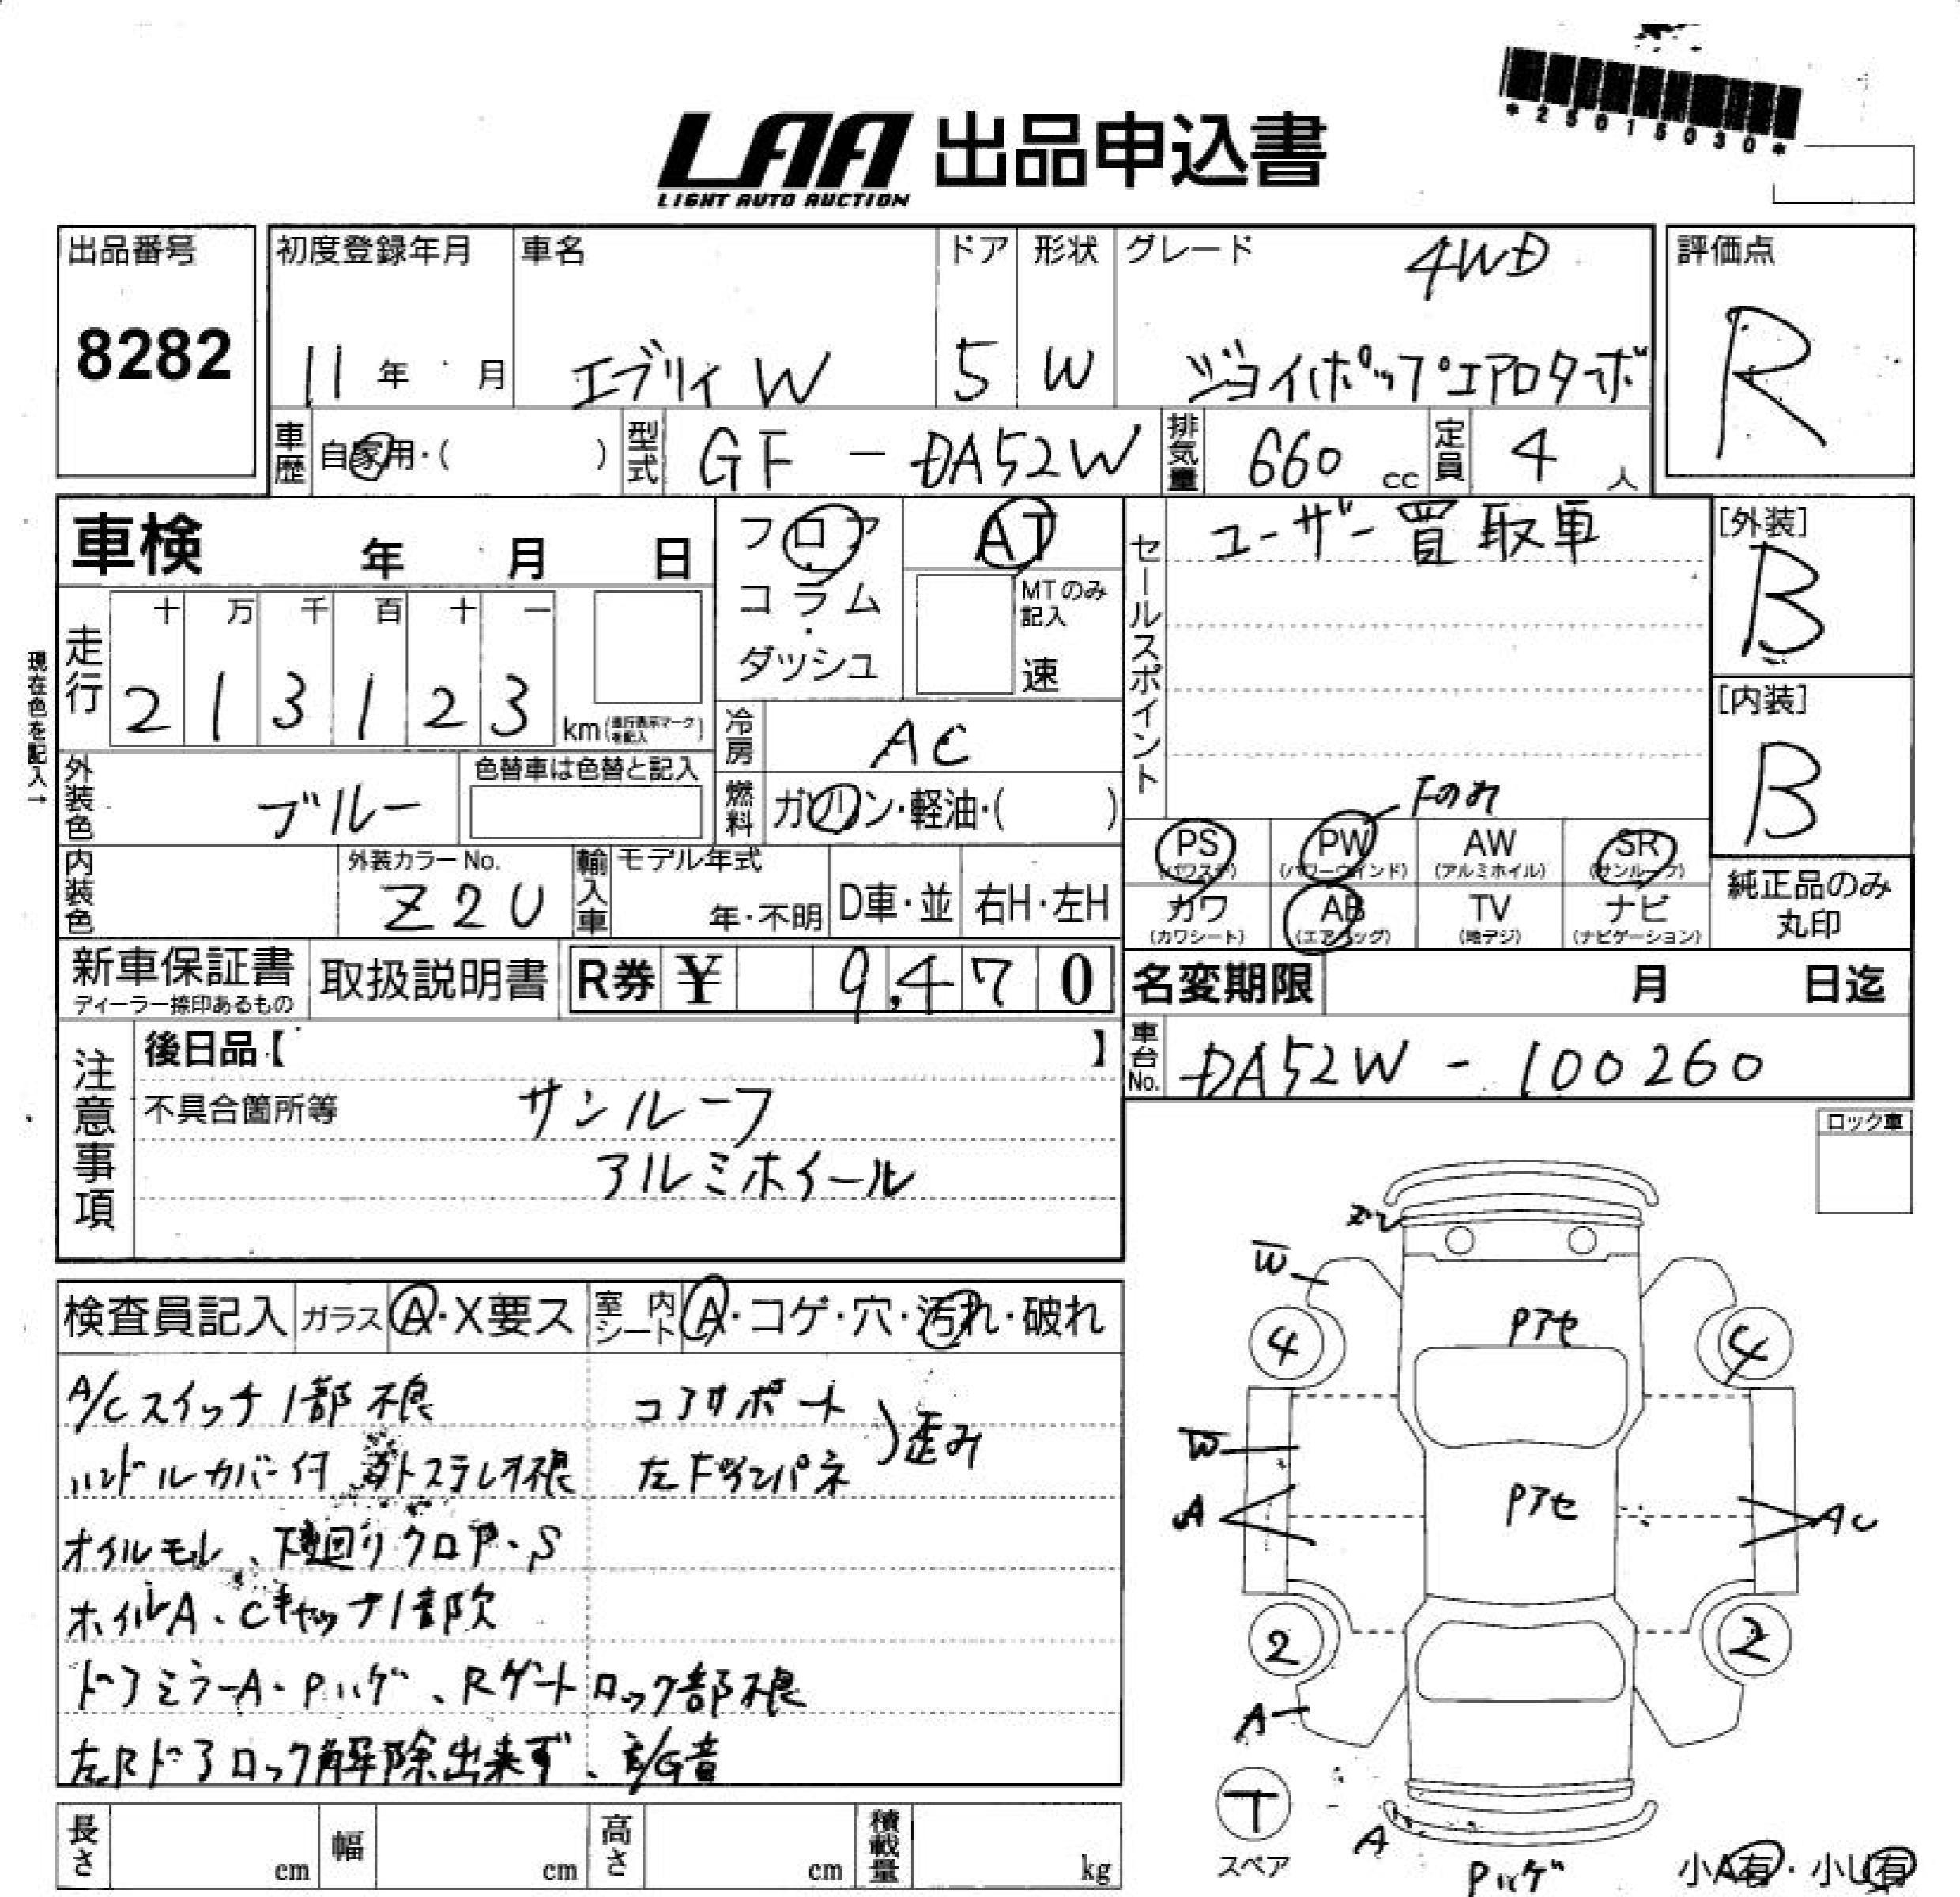 *25015030*
LAA 出品申込書
LIGHT AUTO AUCTION
出品番号
8282
初度登録年月
11 年 月
車名
エブリィ W
ドア
5
形状
W
グレード
4WD
ジョイポップエアロターボ
評価点
R
車歴
自家用・( )
型式
GF - DA52W
排気量
660 cc
定員
4 人
車検 年 月 日
フロア
コラム
・
ダッシュ
AT
MTのみ
記入
速
セールスポイント
ユーザー買取車
[外装]
B
[内装]
B
現在色を記入→
走行
十 万 千 百 十 一
2 1 3 1 2 3
km(走行表示マークを記入)
冷房
AC
外装色
ブルー
色替車は色替と記入
燃料
ガソリン・軽油・( )
Fのみ
PS
(パワステ)
PW
(パワーウインド)
AW
(アルミホイル)
SR
(サンルーフ)
カワ
(カワシート)
AB
(エアバッグ)
TV
(地デジ)
ナビ
(ナビゲーション)
純正品のみ
丸印
内装色
外装カラーNo.
Z2U
輸入車
モデル年式
年・不明
D車・並
右H・左H
新車保証書
ディーラー捺印あるもの
取扱説明書
R券 ¥ 9,470
名変期限 月 日迄
車台No.
DA52W - 100260
注意事項
後日品【 】
不具合箇所等
サンルーフ
アルミホイール
ロック車
検査員記入
ガラス A・X要ス
室内シート A・コゲ・穴・汚れ・破れ
A/Cスイッチ1部不良
コアサポート
ハンドルカバー付 外ステレオ不良
左Fインパネ
歪み
オイルモレ、下廻りクロア・S
ホイルA、Cキャップ1部欠
ドアミラーA・Pハゲ、Rゲートロック部不良
左Rドアロック解除出来ず、E/G音
長さ cm
幅 cm
高さ cm
積載量 kg
ズレ
W
4
Pアセ
4
W
A
Pアセ
AU
2
2
A
T
スペア
A
Pハゲ
小A有・小U有